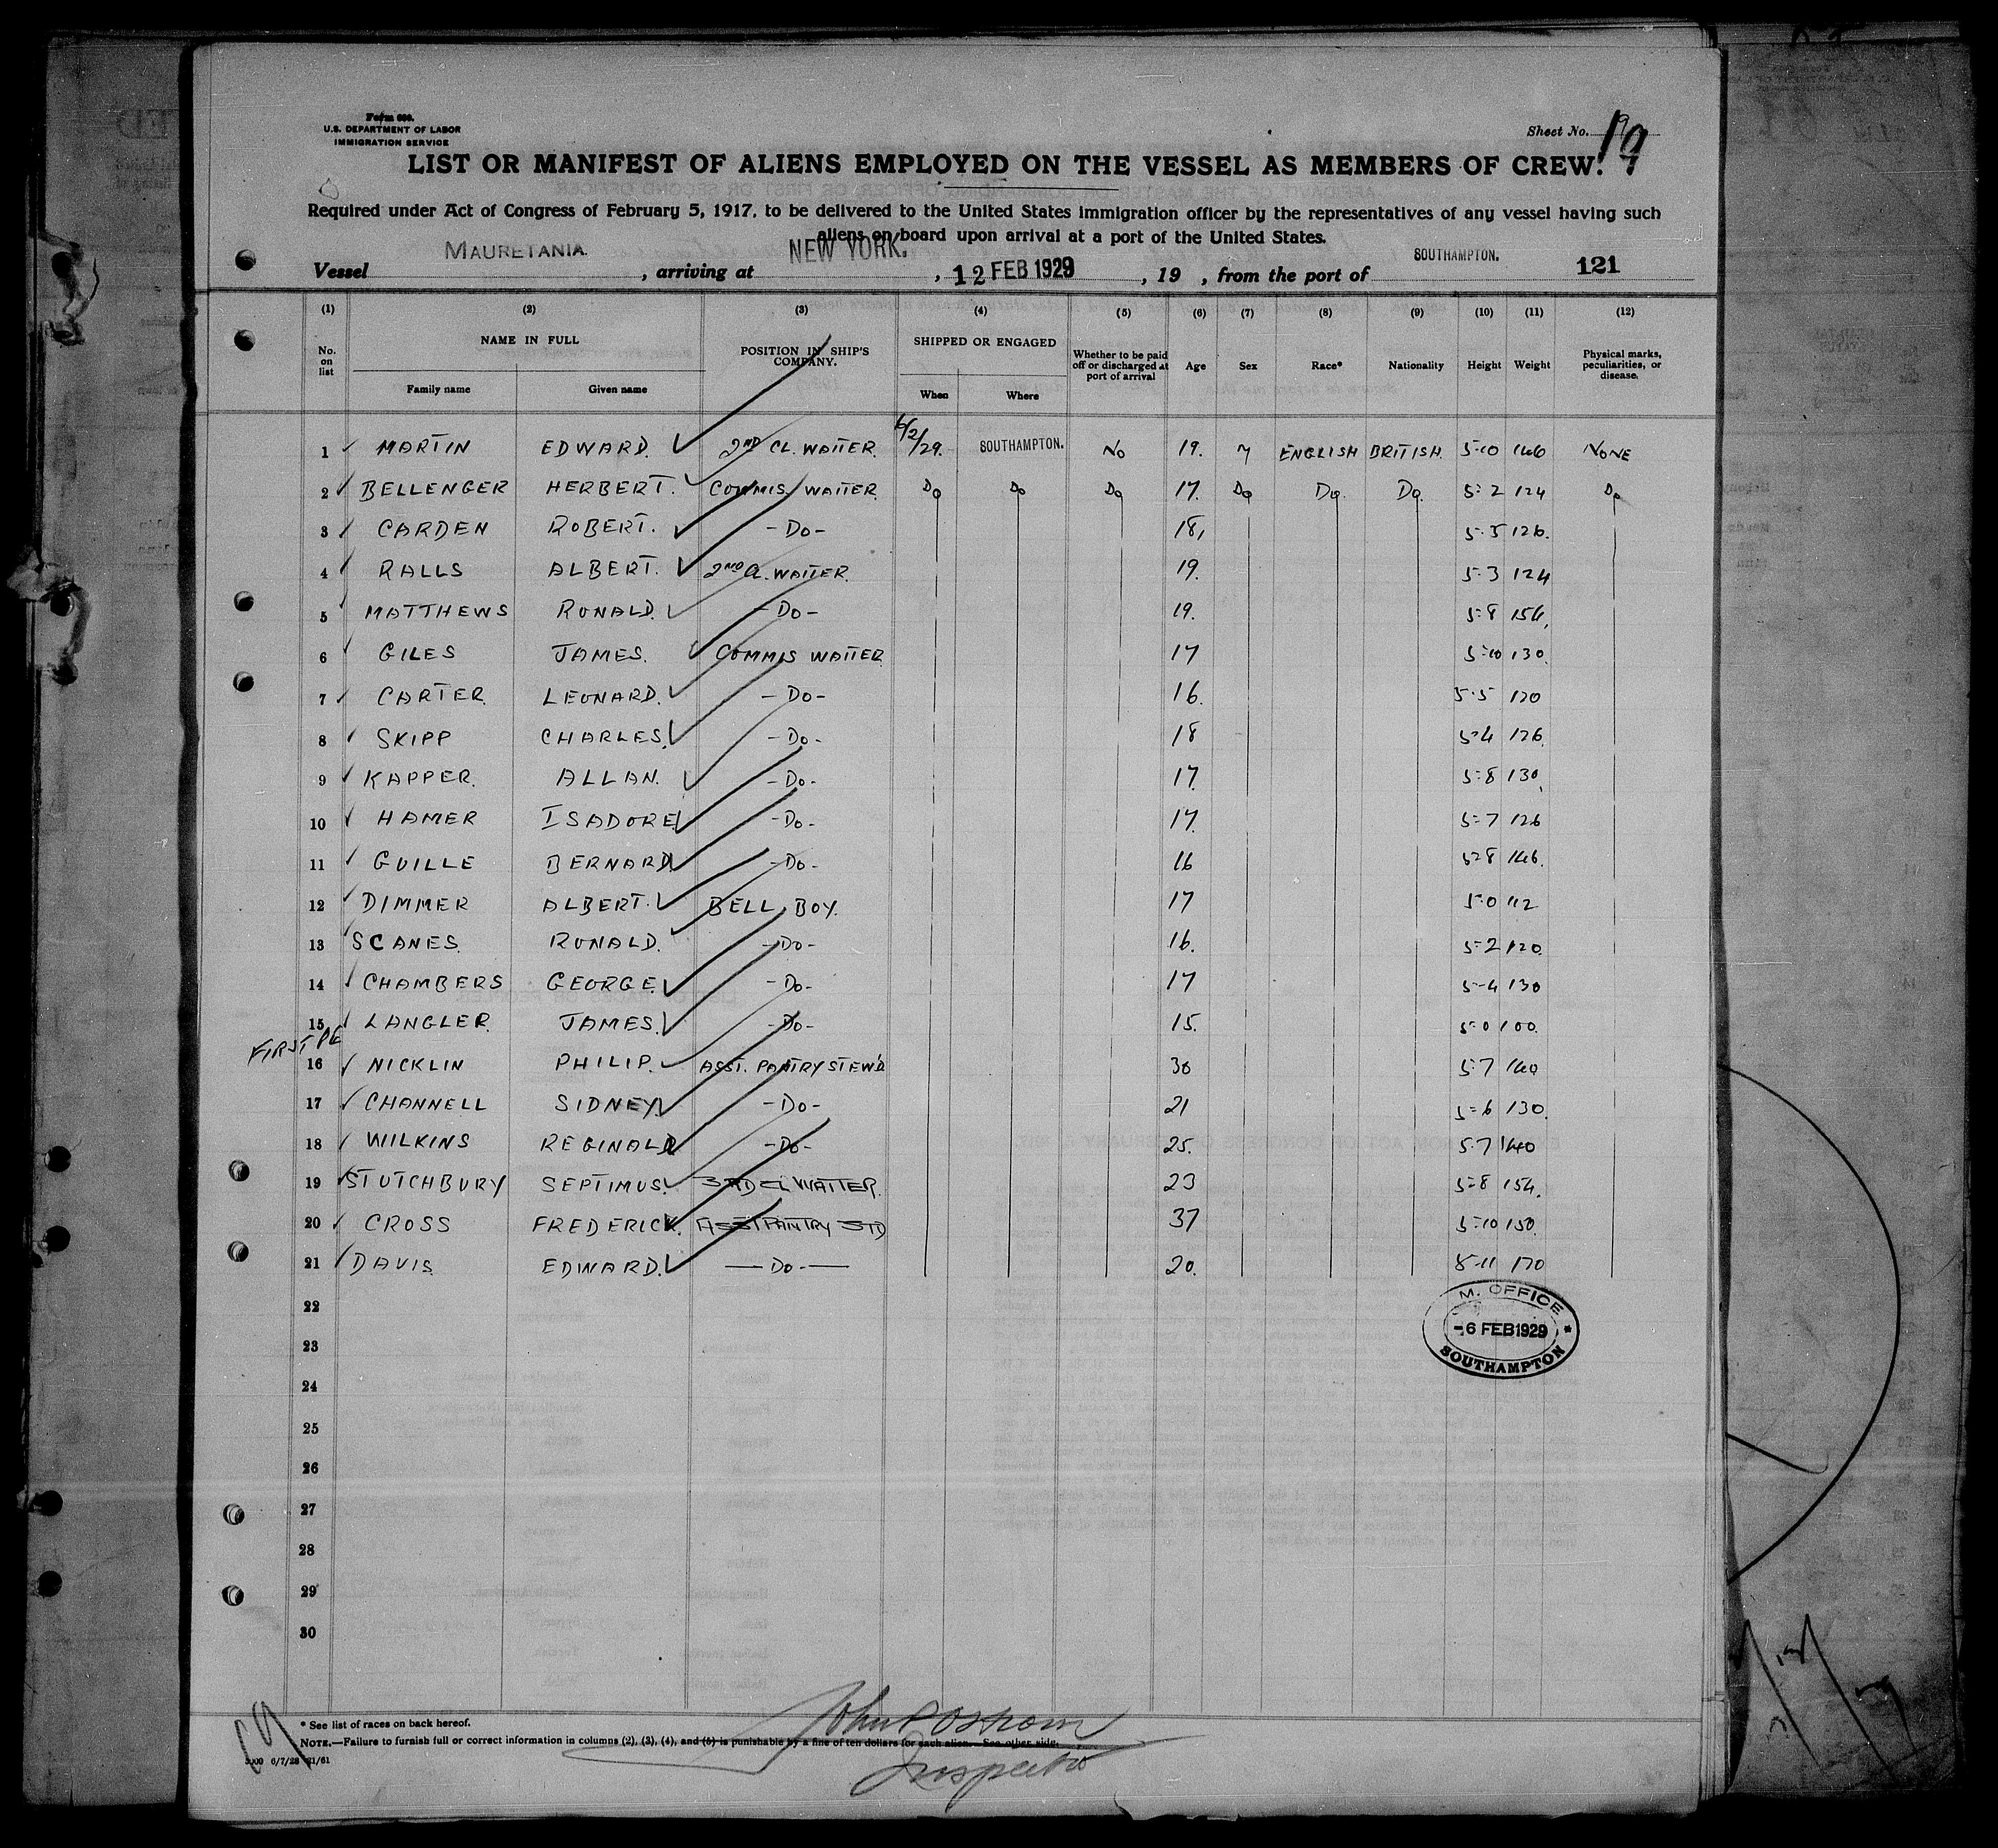 Form 680.
U.S. DEPARTMENT OF LABOR
IMMIGRATION SERVICE
Sheet No. 19
LIST OR MANIFEST OF ALIENS EMPLOYED ON THE VESSEL AS MEMBERS OF CREW.
Required under Act of Congress of February 5, 1917, to be delivered to the United States immigration officer by the representatives of any vessel having such
aliens on board upon arrival at a port of the United States.
Vessel MAURETANIA , arriving at NEW YORK. , 12 FEB 1929 , 19 , from the port of SOUTHAMPTON. 121
(1) (2) (3) (4) (5) (6) (7) (8) (9) (10) (11) (12)
No. on list NAME IN FULL POSITION IN SHIP'S COMPANY. SHIPPED OR ENGAGED Whether to be paid off or discharged at port of arrival Age Sex Race* Nationality Height Weight Physical marks, peculiarities, or disease.
Family name Given name When Where
1 MARTIN EDWARD. 2ND CL. WAITER. 6/2/29. SOUTHAMPTON. No 19. M ENGLISH BRITISH. 5-10 146 NONE
2 BELLENGER HERBERT. COMMIS WAITER Do Do Do 17. Do Do. Do. 5-2 124 Do
3 CARDEN ROBERT. -Do- 18, 5-5 126.
4 RALLS ALBERT. 2ND Cl. WAITER. 19. 5-3 124
5 MATTHEWS RONALD. -Do- 19. 5-8 154,
6 GILES JAMES. COMMIS WAITER 17 5-10 130.
7 CARTER. LEONARD. -Do- 16. 5-5 120
8 SKIPP CHARLES. -Do- 18 5-4 126.
9 KAPPER. ALLAN. -Do- 17. 5-8 130,
10 HAMER ISADORE -Do- 17. 5-7 126
11 GUILLE BERNARD. -Do- 16 5-8 146.
12 DIMMER ALBERT. BELL BOY. 17 5-0 112
13 SCANES. RONALD. -Do- 16. 5-2 120.
14 CHAMBERS GEORGE. -Do- 17 5-4 130
15 LANGLER. JAMES. -Do- 15. 5-0 100.
FIRST PE
16 NICKLIN PHILIP. ASST. PANTRY STEW'D 30 5-7 140
17 CHANNELL SIDNEY -Do- 21 5-6 130.
18 WILKINS REGINALD -Do- 25. 5-7 140
19 STUTCHBURY SEPTIMUS. 3RD CL WAITER. 23 5-8 154.
20 CROSS FREDERICK. ASST PANTRY STD 37 5-10 150.
21 DAVIS. EDWARD. -Do- 20. 5-11 170
22
M. OFFICE
-6 FEB 1929 *
SOUTHAMPTON
23
24
25
26
27
28
29
30
19
* See list of races on back hereof.
NOTE.—Failure to furnish full or correct information in columns (2), (3), (4), and (5) is punishable by a fine of ten dollars for each alien. See other side.
6/7/28 21/61
John
Inspector